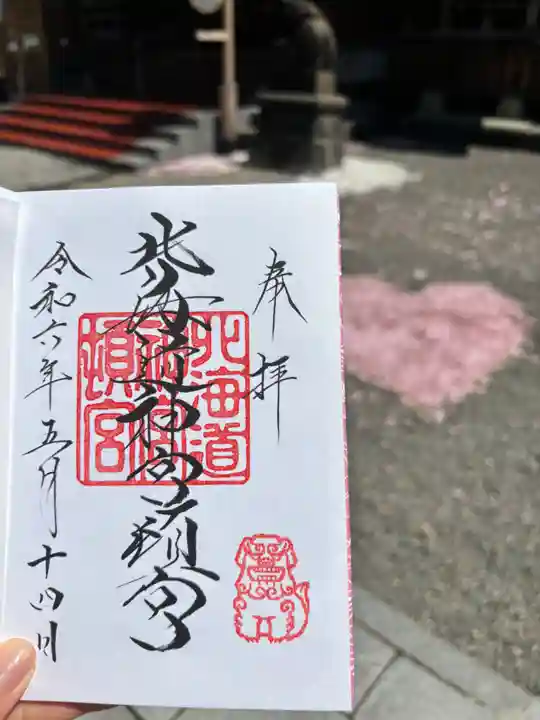 奉拝
北海道神宮頓宮
北海道
神宮
頓宮
令和六年五月十四日